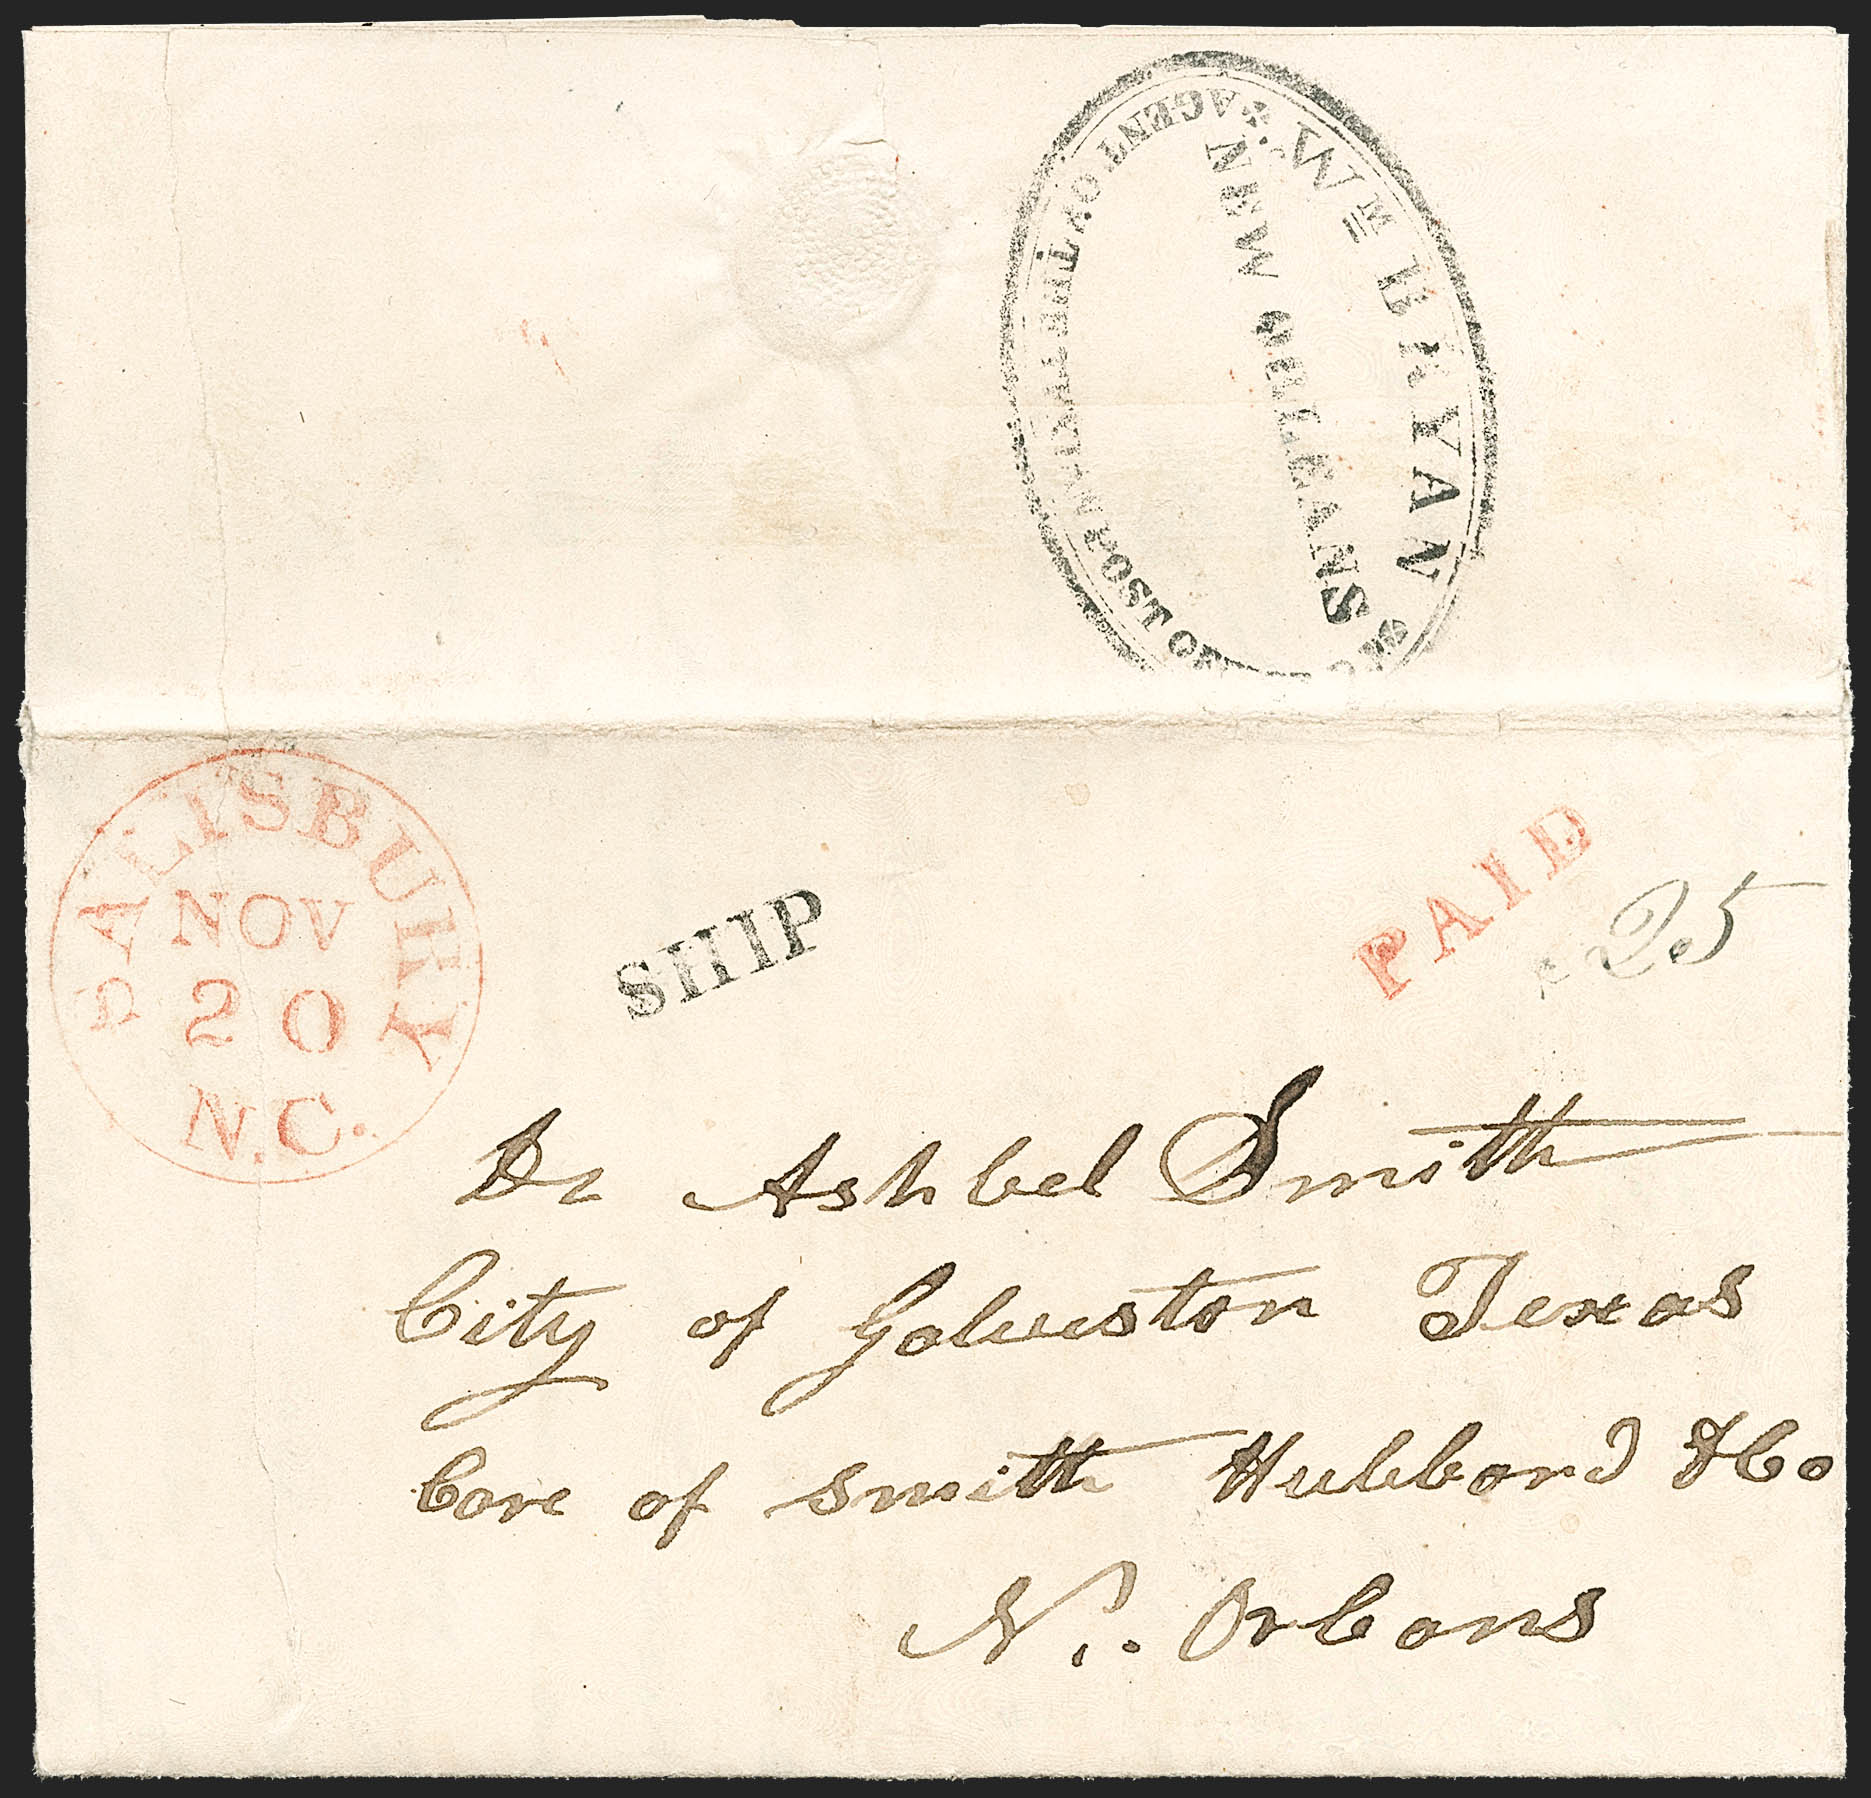 Wᴹ BRYAN
NEW ORLEANS
AGENT OF THE TEXIAN POST
SALISBURY
NOV
20
N.C.
SHIP
PAID
25
Dr Ashbel Smith
City of Galveston Texas
Care of Smith Hubbard & Co
N. Orleans